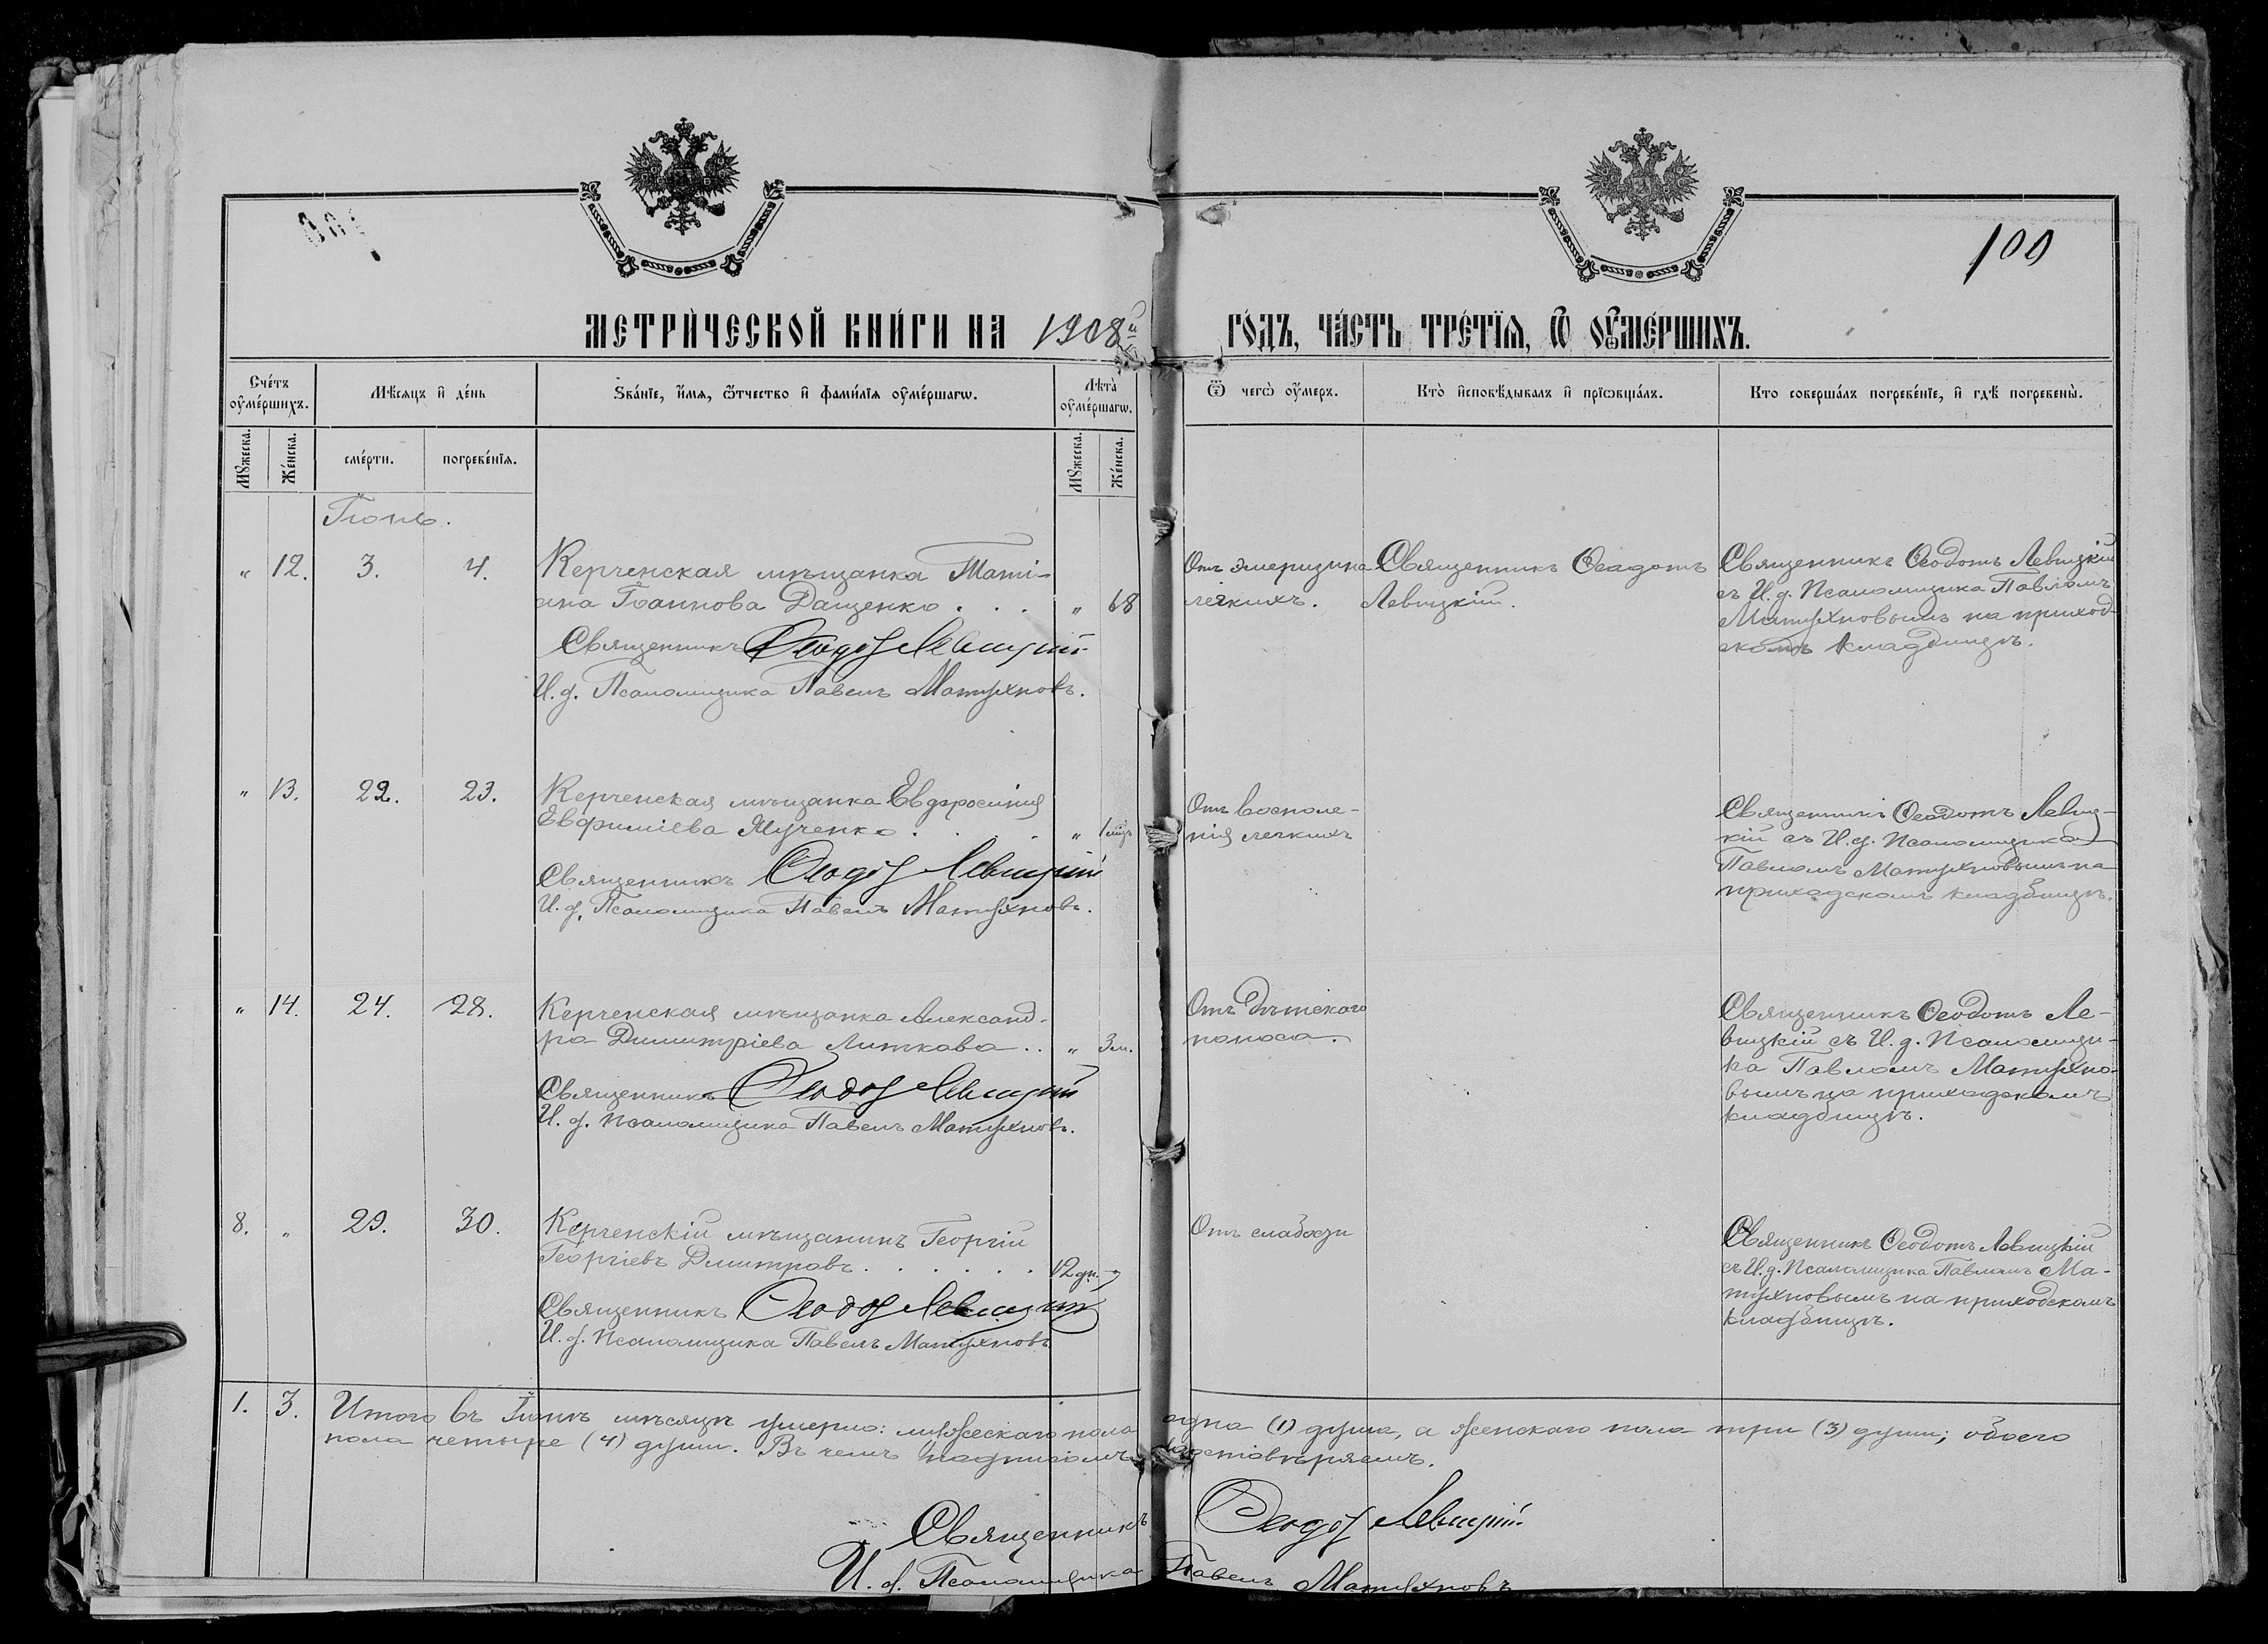 100
МЕТРИ́ЧЕСКОЙ КНИ́ГИ НА 1908й ГО́ДЪ, ЧА́СТЬ ТРЕ́ТЇЯ, Ѿ ОУ҆МЕ́РШИХЪ.
Сче́тъ оу҆ме́ршихъ.
Мѣ́сяцъ и҆ де́нь
Ѕва́нїе, и҆́мя, ѻ҆́тчество и҆ фами́лїя оу҆ме́ршагѡ.
Лѣта̀ оу҆ме́ршагѡ.
Ѿ чегѡ̀ оу҆́меръ.
Кто̀ и҆сповѣ́дывалъ и҆ прїѡбща́лъ.
Кто соверша́лъ погребе́нїе, и҆ гдѣ̀ погребены̀.
Мꙋ́жеска.
Же́нска.
сме́рти.
погребе́нїя.
Мꙋ́жеска.
Же́нска.
Іюнь.
" 12. 3. 4. Керченская мѣщанка Таті-
ана Іоаннова Даценко . . . " 68
Священникъ Ѳеодотъ Левицкій
И. д. Псаломщика Павелъ Матухновъ.
Отъ эмеризма
легкихъ.
Священникъ Ѳеодотъ
Левицкій.
Священникъ Ѳеодотъ Левицкій
съ И. д. Псаломщика Павломъ
Матухновымъ на приход-
скомъ кладбищѣ.
" 13. 22. 23. Керченская мѣщанка Евдфросинія
Евфиміева Ячученко . . . " 1 мѣц
Священникъ Ѳеодотъ Левицкій
И. д. Псаломщика Павелъ Матухновъ.
Отъ воспале-
нія легкихъ
Священникъ Ѳеодотъ Левиц-
кій съ И. д. Псаломщика
Павломъ Матухновымъ на
приходскомъ кладбищѣ.
" 14. 24. 28. Керченская мѣщанка Александ-
ра Димитріева Литкова . . " 3 м.
Священникъ Ѳеодотъ Левицкій
И. д. Псаломщика Павелъ Матухновъ.
Отъ дѣтскаго
поноса.
Священникъ Ѳеодотъ Ле-
вицкій съ И. д. Псаломщи-
ка Павломъ Матухно-
вымъ на приходскомъ
кладбищѣ.
8. " 29. 30. Керченскій мѣщанинъ Георгій
Георгіевъ Димитровъ . . . . . . 12 дн. "
Священникъ Ѳеодотъ Левицкій
И. д. Псаломщика Павелъ Матухновъ
Отъ слабости
Священникъ Ѳеодотъ Левицкій
съ И. д. Псаломщика Павломъ Ма-
тухновымъ на приходскомъ
кладбищѣ.
1. 3. Итого въ Іюнѣ мѣсяцѣ умерло: мужескаго пола одна (1) душа, а женскаго пола три (3) души; обоего
пола четыре (4) души. Въ чемъ подписомъ удостовѣряемъ.
Священникъ Ѳеодотъ Левицкій
И. д. Псаломщика Павелъ Матухновъ